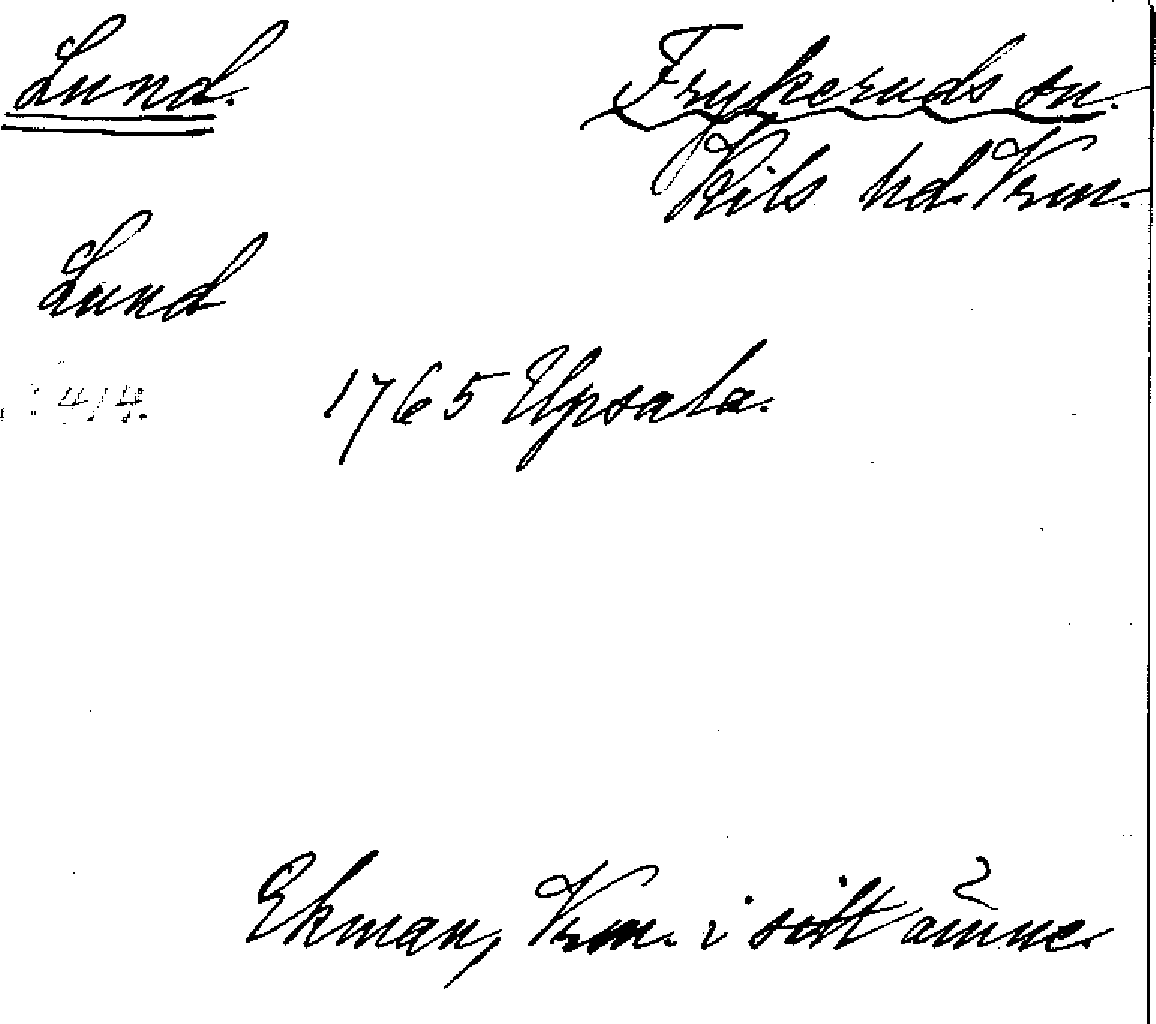 Lund.
Frykeruds sn.
Kils hd. Vrm.
Lund
1765 Upsala.
414.
Ekman, Vrm. i sitt ämne.